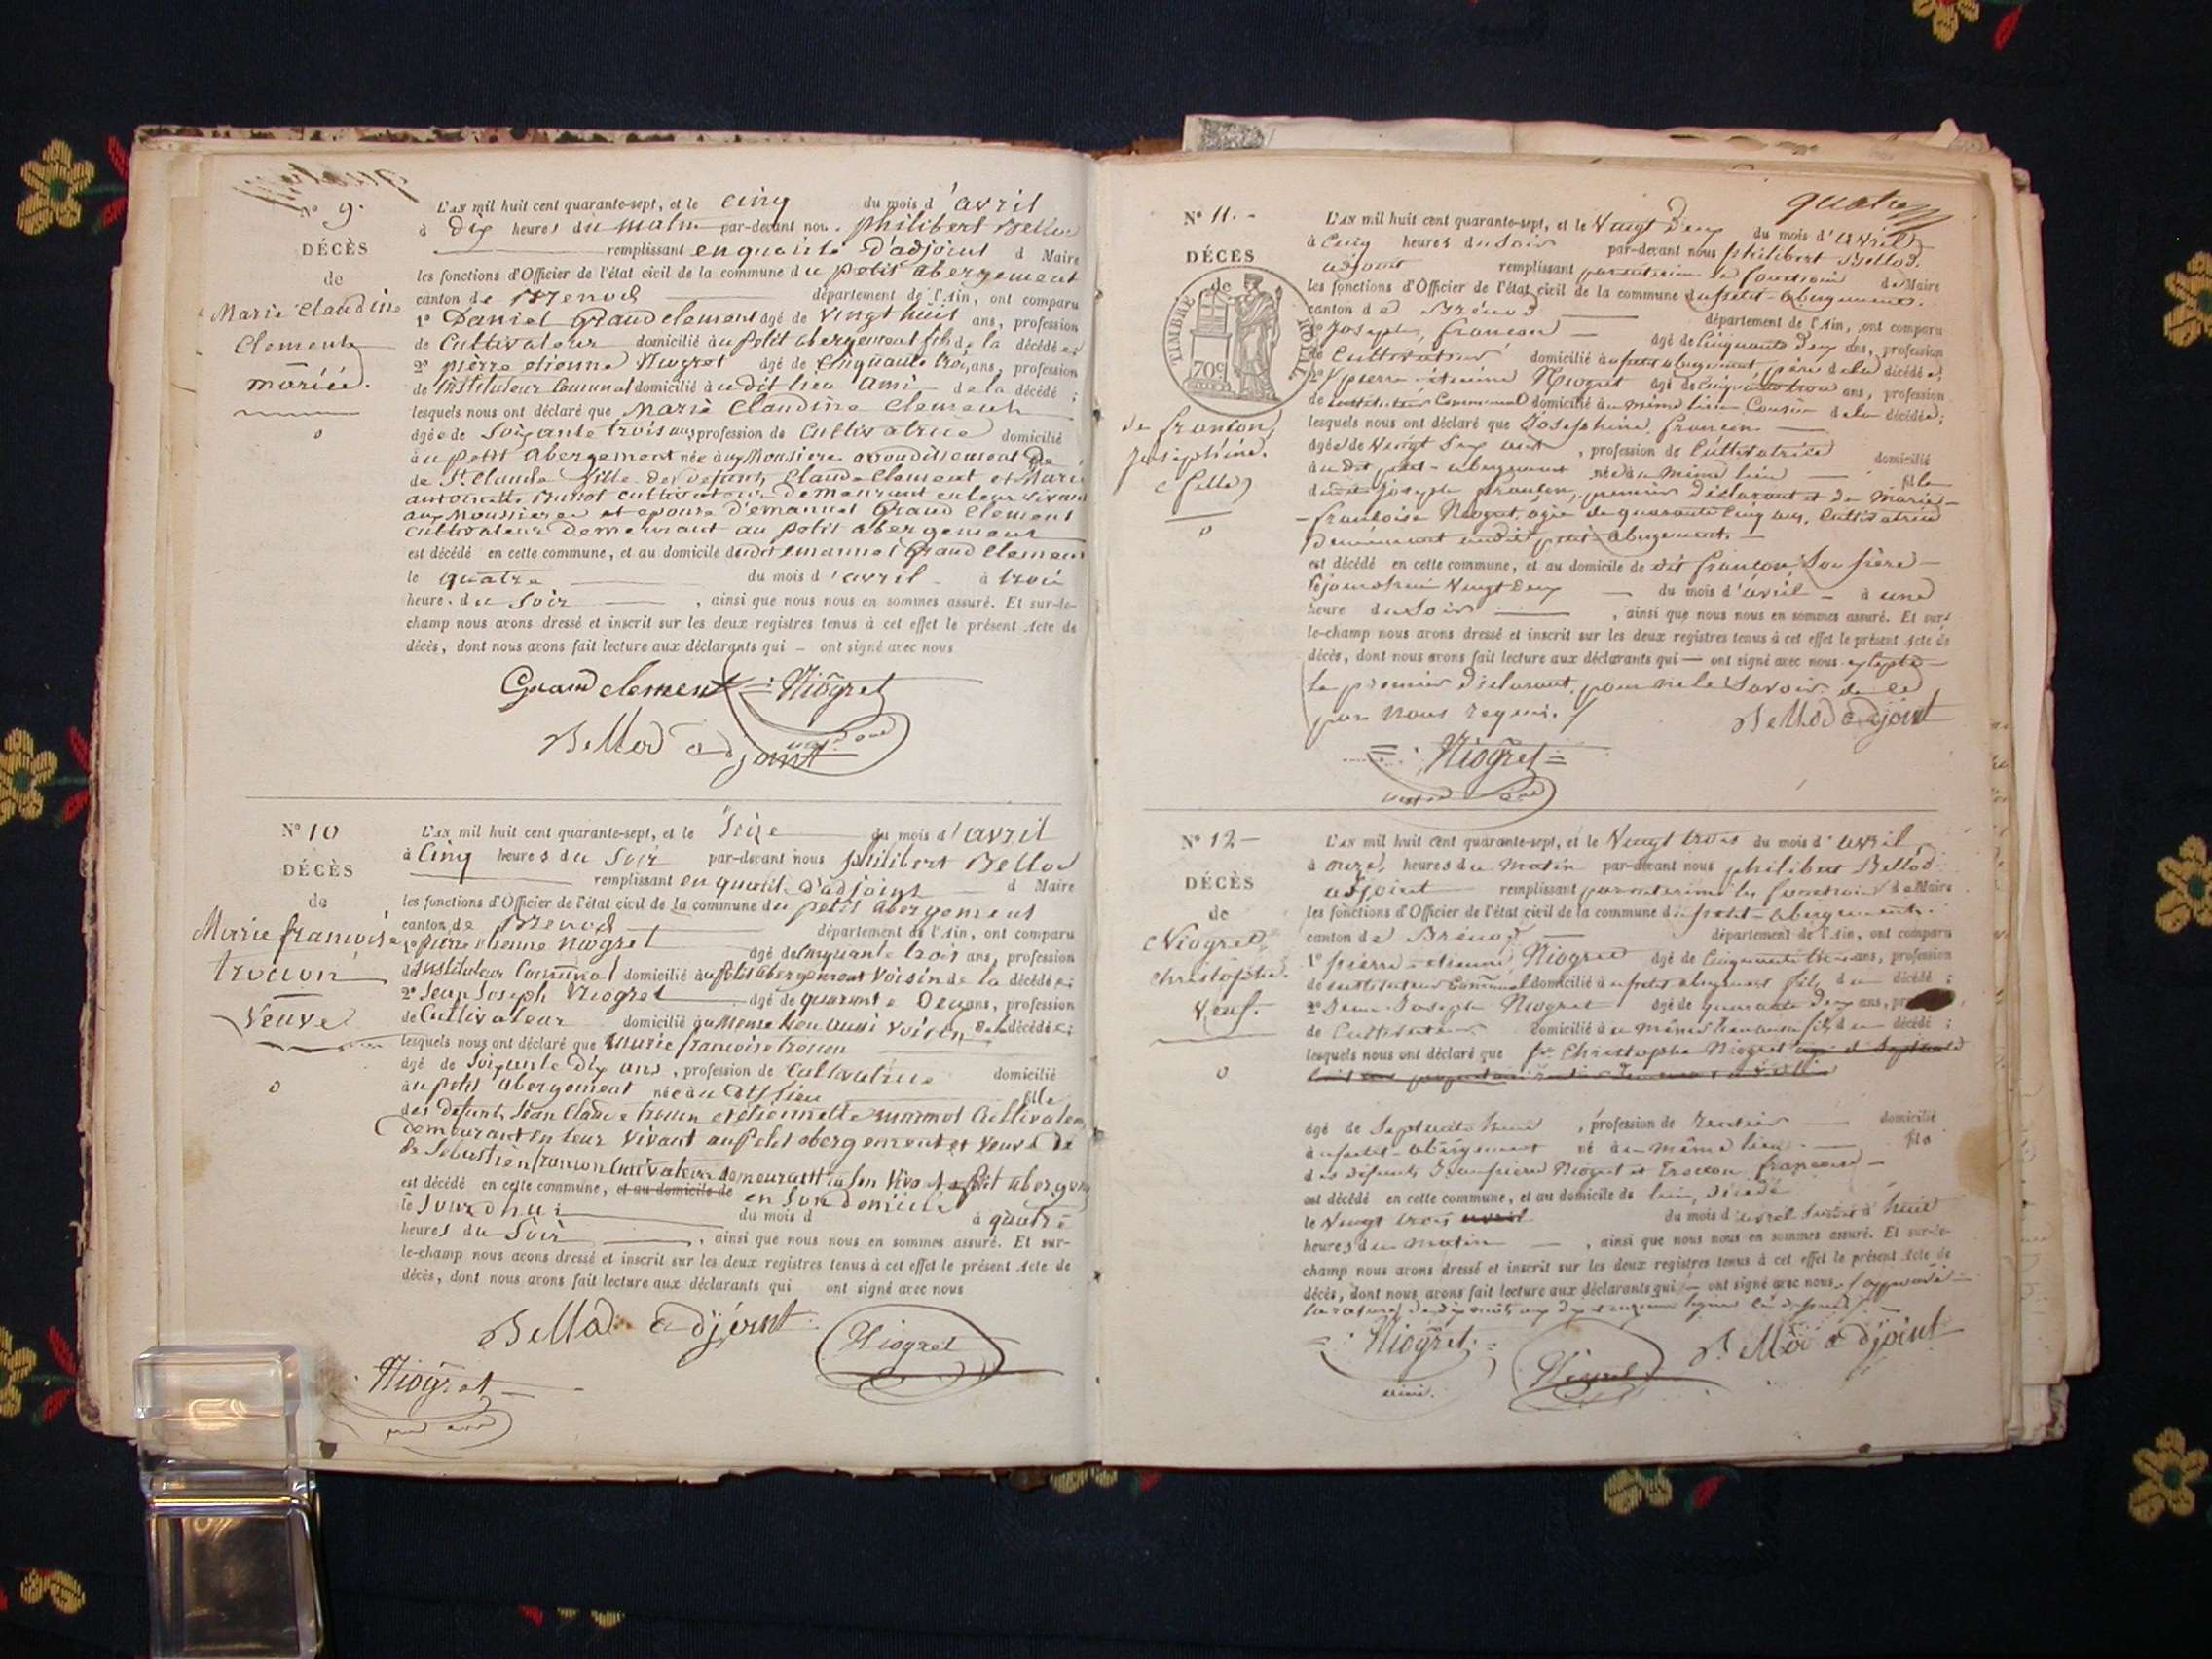 N° 9.
DÉCÈS
de
Marie Claudine
Clement
mariée.
L'AN mil huit cent quarante-sept, et le cinq du mois d'avril
à dix heures du matin par-devant nous philibert Bellod
remplissant en qualité d'adjoint d Maire
les fonctions d'Officier de l'état civil de la commune du petit abergement
canton de Brenod département de l'Ain, ont comparu
1° Daniel Grandclement âgé de vingt huit ans, profession
de Cultivateur domicilié au petit abergement fils de la décédée;
2° pierre etienne Niogret âgé de Cinquante trois ans, profession
de instituteur Communal domicilié audit lieu ami de la décédé;
lesquels nous ont déclaré que Marie Claudine Clement
âgée de Soixante trois ans profession de Cultivatrice domicilié
au petit Abergement née aux Mousieres arrondissement de
de St Claude fille des defunts Claude Clement et Marie
antoinette cultivateurs demeurant en leur vivant
aux Moussieres et epouse d'emanuel Grand Clement
cultivateur demeurant au petit abergement
est décédé en cette commune, et au domicile dudit emanuel Grand Clement
le quatre du mois d'avril à trois
heures du Soir, ainsi que nous nous en sommes assuré. Et sur-le-
champ nous avons dressé et inscrit sur les deux registres tenus à cet effet le présent Acte de
décès, dont nous avons fait lecture aux déclarants qui ont signé avec nous
Grand clement Niogret
Bellod adjoint
N° 10
DÉCÈS
de
Marie francoise
trocon
Veuve
L'AN mil huit cent quarante-sept, et le Seize du mois d'avril
à Cinq heures du Soir par-devant nous philibert Bellod
remplissant en qualité d'adjoint d Maire
les fonctions d'Officier de l'état civil de la commune du petit abergement
canton de Brenod département de l'Ain, ont comparu
1° pierre etienne Niogret âgé de Cinquante trois ans, profession
d'instituteur Communal domicilié au petit abergement Voisin de la décédée;
2° Jean Joseph Niogret âgé de quarante Deux ans, profession
de Cultivateur domicilié au meme lieu aussi voisin de la décédée;
lesquels nous ont déclaré que Marie francoise trocon
âgé de Soixante dix ans, profession de Cultivatrice domicilié
au petit abergement née au dit lieu fille
des defunts Jean Claude trocon et etiennette Cultivateurs
demeurant en leur vivant au petit abergement et veuve de
Sebastien francon Cultivateur demeurant en son vivant petit abergement
est décédé en cette commune, et au domicile de en son domicile
le Jourdhui du mois d à quatre
heures du Soir, ainsi que nous nous en sommes assuré. Et sur-
le-champ nous avons dressé et inscrit sur les deux registres tenus à cet effet le présent Acte de
décès, dont nous avons fait lecture aux déclarants qui ont signé avec nous
Bellod adjoint Niogret
Niogret
quatre
N° 11.
DÉCÈS
de
TIMBRE ROYAL
70c
de françon,
Joséphine.
fille
L'AN mil huit cent quarante-sept, et le Vingt Deux du mois d'avril
à Cinq heures du Soir par-devant nous philibert Bellod.
adjoint remplissant par interim les fonctions de Maire
les fonctions d'Officier de l'état civil de la commune du petit-abergement.
canton de Brénod département de l'Ain, ont comparu
1° Joseph, françon âgé de Cinquante Deux ans, profession
de Cultivateur domicilié au petit abergement, père de la décédée;
2° pierre étienne Niogret âgé de cinquante trois ans, profession
de instituteur Communal domicilié au même lieu Cousin de la décédée;
lesquels nous ont déclaré que Joséphine françon
âgée de Vingt ans, profession de Cultivatrice domicilié
audit petit-abergement née au même lieu fille
dudit Joseph françon, premier déclarant et de Marie-
françoise Niogret, agée de quarante Cinq ans, Cultivatrice
Demeurant audit petit-abergement.
est décédé en cette commune, et au domicile de dit françon son père
le jourdhui vingt Deux du mois d'avril à une
heure du Soir, ainsi que nous nous en sommes assuré. Et sur-
le-champ nous avons dressé et inscrit sur les deux registres tenus à cet effet le présent Acte de
décès, dont nous avons fait lecture aux déclarants qui ont signé avec nous excepté
le premier déclarant, pour ne le Savoir de ce
par nous requis.
Bellod adjoint
Niogret
N° 12
DÉCÈS
de
Niogret,
Christophe.
Veuf.
L'AN mil huit cent quarante-sept, et le Vingt trois du mois d'avril
à onze, heures du matin par-devant nous philibert Bellod
adjoint remplissant par interim les fonctions de Maire
les fonctions d'Officier de l'état civil de la commune du petit-abergement.
canton de Brénod département de l'Ain, ont comparu
1° pierre-étienne Niogret âgé de Cinquante trois ans, profession
de instituteur Communal domicilié au petit abergement fils du décédé;
2° Jean-Joseph Niogret âgé de quarante deux ans,
de Cultivateur domicilié au même lieu aussi fils du décédé;
lesquels nous ont déclaré que Christophe Niogret
âgé de, profession de Rentier domicilié
au petit-abergement né au même lieu fils
des défunts Jean pierre Niogret et Trocon françoise
est décédé en cette commune, et au domicile de lui, décédé
le Vingt trois avril du mois d'avril à huit
heures du matin, ainsi que nous nous en sommes assuré. Et sur-le-
champ nous avons dressé et inscrit sur les deux registres tenus à cet effet le présent Acte de
décès, dont nous avons fait lecture aux déclarants qui ont signé avec nous. approuvé
la rature
Niogret. Niogret Bellod adjoint